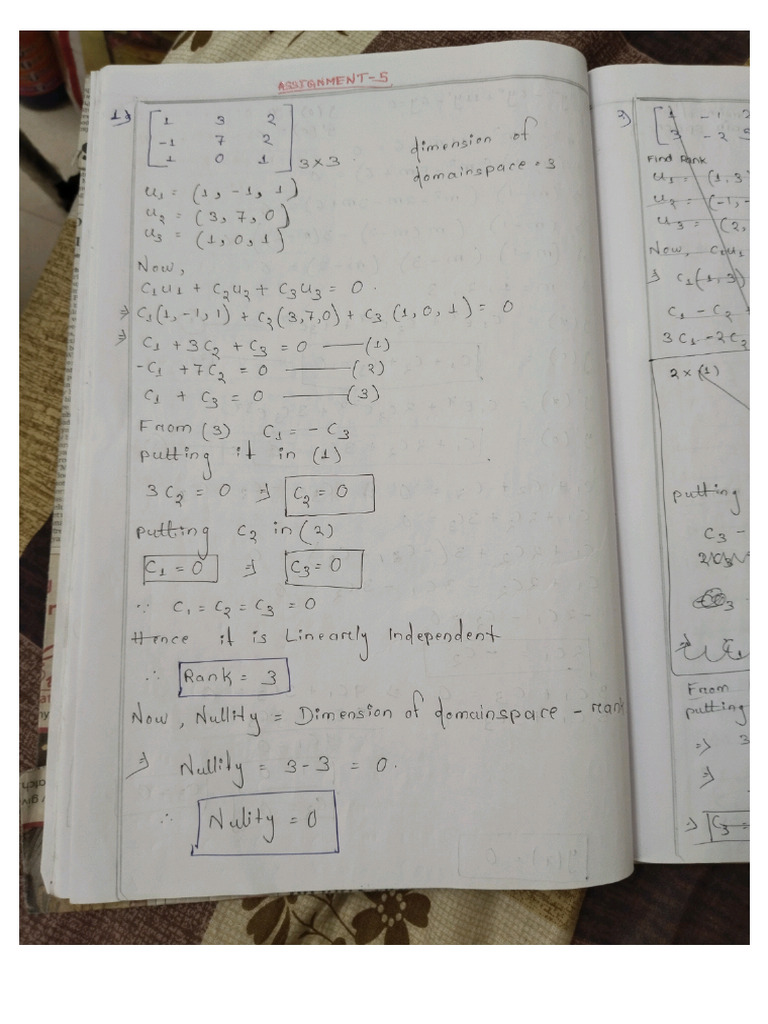 ASSIGNMENT-5
1) [1 3 2
-1 7 2
1 0 1] 3×3
dimension of
domainspace = 3
u1 = (1, -1, 1)
u2 = (3, 7, 0)
u3 = (1, 0, 1)
Now,
C1u1 + C2u2 + C3u3 = 0.
⇒ C1(1, -1, 1) + C2(3, 7, 0) + C3(1, 0, 1) = 0
⇒ C1 + 3C2 + C3 = 0 —(1)
-C1 + 7C2 = 0 —(2)
C1 + C3 = 0 —(3)
From (3) C1 = -C3
putting it in (1)
3C2 = 0 ⇒ C2 = 0
putting C2 in (2)
C1 = 0 ⇒ C3 = 0
∵ C1 = C2 = C3 = 0
Hence it is Linearly Independent
∴ Rank = 3
Now, Nullity = Dimension of domainspace - rank
⇒ Nullity = 3 - 3 = 0.
∴ Nulity = 0
3) [1 -1 2
3 -2 5
Find Rank
u1 = (1, 3)
u2 = (-1, -
u3 = (2,
Now, C1u1
⇒ C1(1, 3)
C1 - C2
3C1 - 2C2
2 × (1)
putting
C3 -
From
putting
⇒ 3
⇒
⇒ C3 =